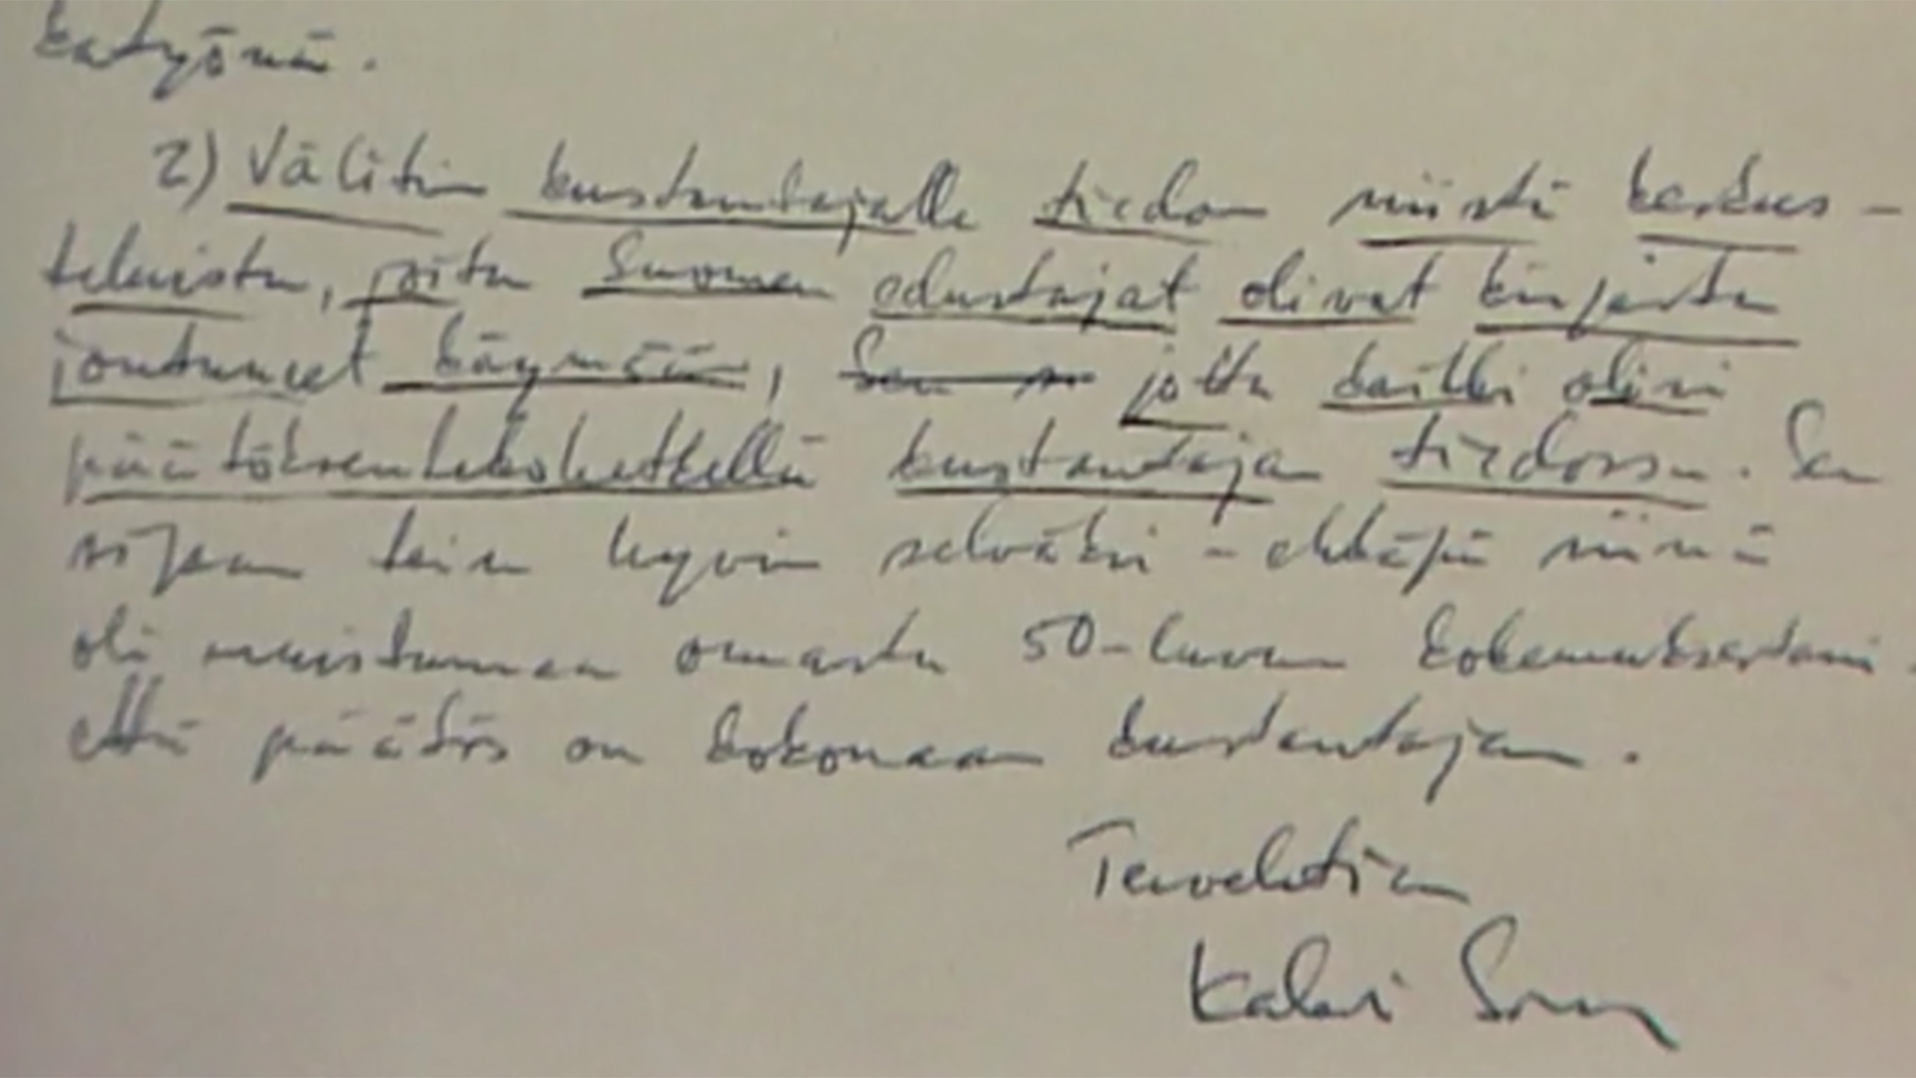 katyönä.
2) Välitin kustantajalle tiedon niistä keskus-
teluista, joita Suomen edustajat olivat kirjasta
joutuneet käymään, Sen jotta kaikki olisi
päätöksentekohetkellä kustantajan tiedossa. Sen
sijaan tein hyvin selväksi - ehkäpä siinä
oli muistuman omasta 50-luvun kokemuksestani.
että päätös on kokonaan kustantajan.
Tervehtien
Kalevi Sorsa